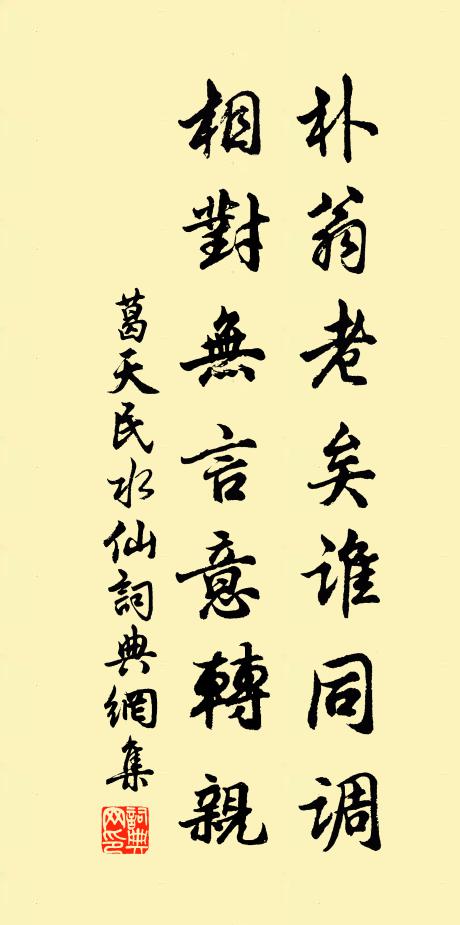 朴翁老矣誰同調
相對無言意轉親
葛天民水仙詞典網集
詞典網印